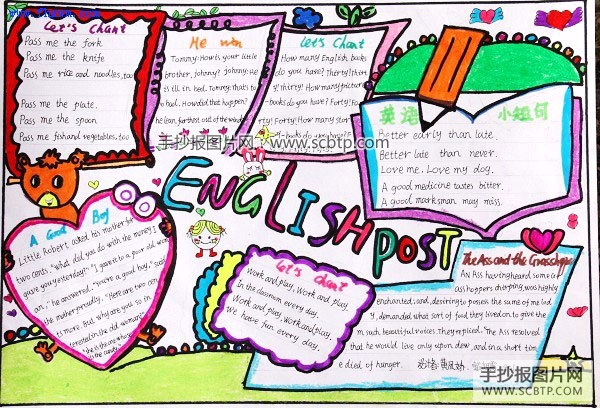 Let's Chant
Pass me the fork
Pass me the knife
Pass me rice and noodles, too
Pass me the plate.
Pass me the spoon
Pass me fish and vegetables, too
He won
Tommy: How is your little
brother, Johnny? Johnny: He
is ill in bed. Tommy: That's to
bad. How did that happen?
he lean furthest out of the window
Let's Chant
How many English books
do you have? Thirty! Thirty!
How many
books do you have? Forty! Forty!
Forty! How many story
books do you have?
手抄报图片网:www.scbtp.com
英语 小短句
Better early than late.
Better late than never.
Love me. Love my dog.
A good medicine tastes bitter.
A good marksman may miss.
ENGLISH POST
A Good Boy
Little Robert asked his mother for
two cents. "what did you do with the money I
gave you yesterday?" "I gave it to a poor old woman
," he answered. "you're a good boy," said
the mother proudly. "Here are two cents
more. But why are you so in
terested in the old woman?"
"She is the one who
the candy."
Let's Chant
Work and play, Work and play,
In the classroom every day.
Work and play, Work and play,
We have fun every day.
The Ass and the Grasshopper
AN Ass having heard some Gr
asshoppers chirping, was highly
enchanted; and, desiring to possess the same of melod
y, demanded what sort of food they lived on to give the
m such beautiful voices. They replied. "The Ass resolved
that he would live only upon dew, and in a short tim
e died of hunger.
手抄报图片网
SCBTP.COM